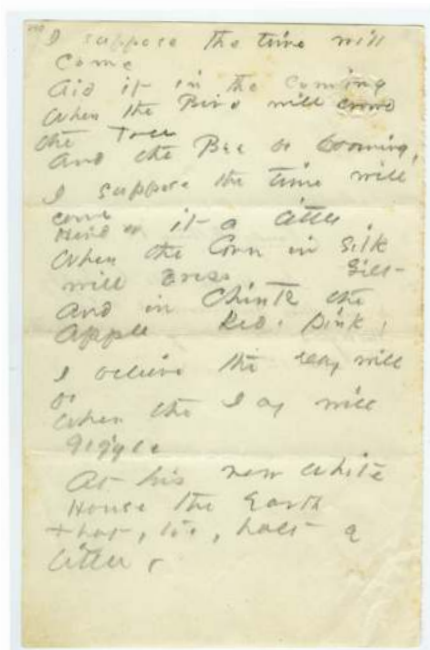 I suppose the time will
come
Aid it in the coming
When the Bird will crowd
the Tree
And the Bee be booming,
I suppose the time will
come
Hinder it a little
When the Corn in Silk
will Dress Gilt-
And in Chintz the
Apple Red. Pink,
I believe the Day will
be
When the Jay will
giggle
At his new white
House the Earth
that, too, halt a
little -